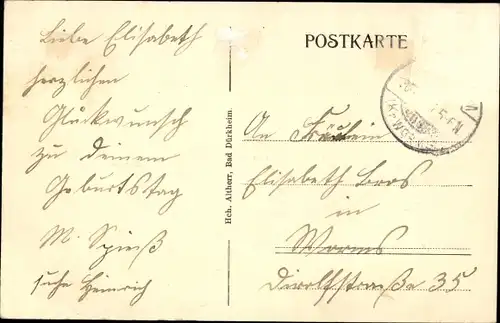 Liebe Elisabeth
herzlichen
Glückwunsch
zu Deinem
Geburtstag
M. Spieß
Heinrich
Hch. Altherr, Bad Dürkheim.
POSTKARTE
An Fräulein
Elisabeth Boos
in
Worms
35